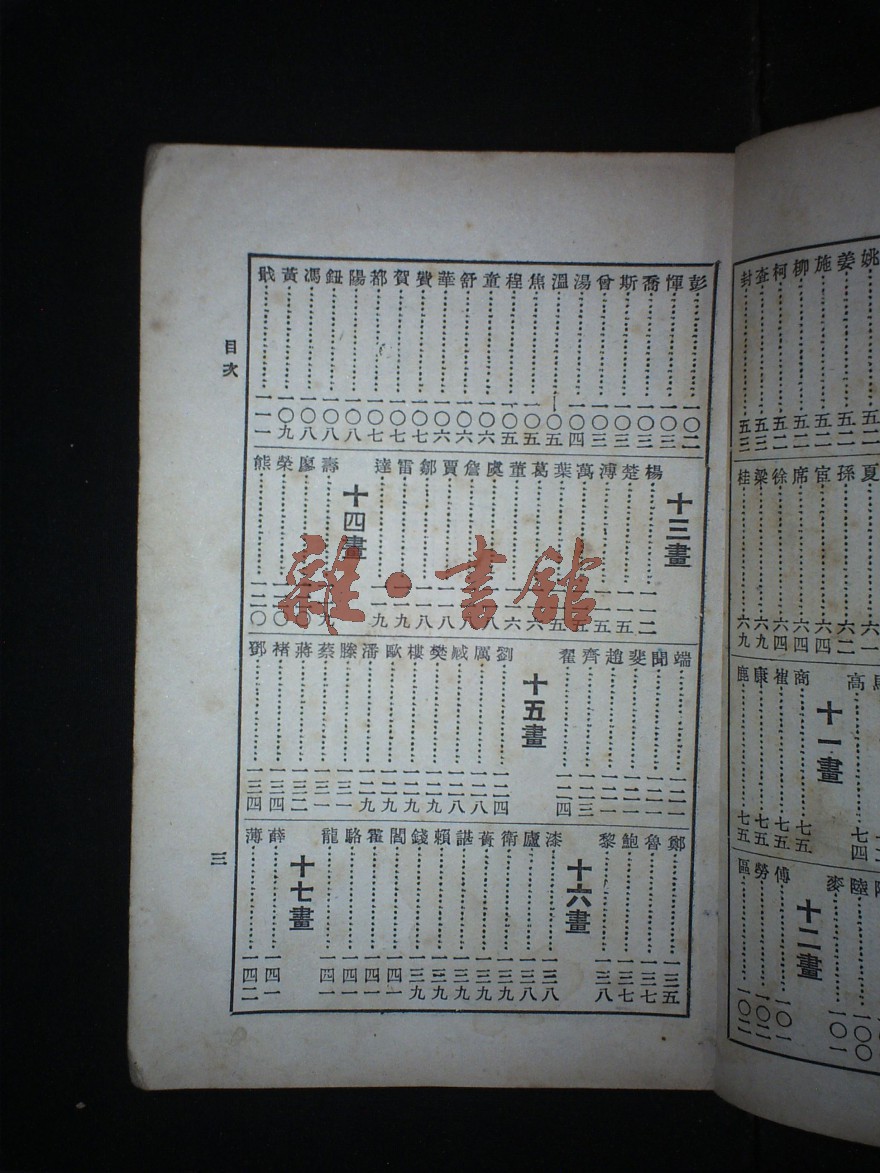 姚
姜 五二
施 五二
柳 五二
柯 五二
查 五三
封 五三
夏 六一
孫 六二
宦 六四
席 六四
徐 六四
梁 六九
桂 六九
馬
高 七四
十一畫
商 七五
崔 七五
康 七五
鹿 七五
陸 一〇〇
麥 一〇一
十二畫
傅 一〇一
勞 一〇二
區 一〇二
彭 一〇二
惲 一〇三
喬 一〇三
斯 一〇三
曾 一〇三
湯 一〇四
溫 一〇五
焦 一〇五
程 一〇五
童 一〇六
舒 一〇六
華 一〇六
費 一〇七
賀 一〇七
都 一〇七
陽 一〇八
鈕 一〇八
馮 一〇八
黃 一〇九
戢 一一一
十三畫
楊 一一二
楚 一一五
溥 一一五
萬 一一五
葉 一一五
葛 一一六
董 一一六
虞 一一八
詹 一一八
賈 一一八
鄒 一一八
雷 一一九
達 一一九
十四畫
壽
廖
榮
熊 一二〇
端 一二一
聞 一二一
斐 一二一
趙 一二一
齊 一二三
翟 一二四
十五畫
劉 一二四
厲 一二八
臧 一二八
樊 一二九
樓 一二九
歐 一二九
潘 一二九
滕 一三一
蔡 一三一
蔣 一三二
褚 一三四
鄧 一三四
鄭 一三五
魯 一三七
鮑 一三七
黎 一三八
十六畫
漆 一三八
盧 一三八
衛 一三九
蒉 一三九
諶 一三九
賴 一三九
錢 一三九
閻 一四一
霍 一四一
駱 一四一
龍 一四一
十七畫
薛 一四一
薄 一四二
目次
三
雜·書館